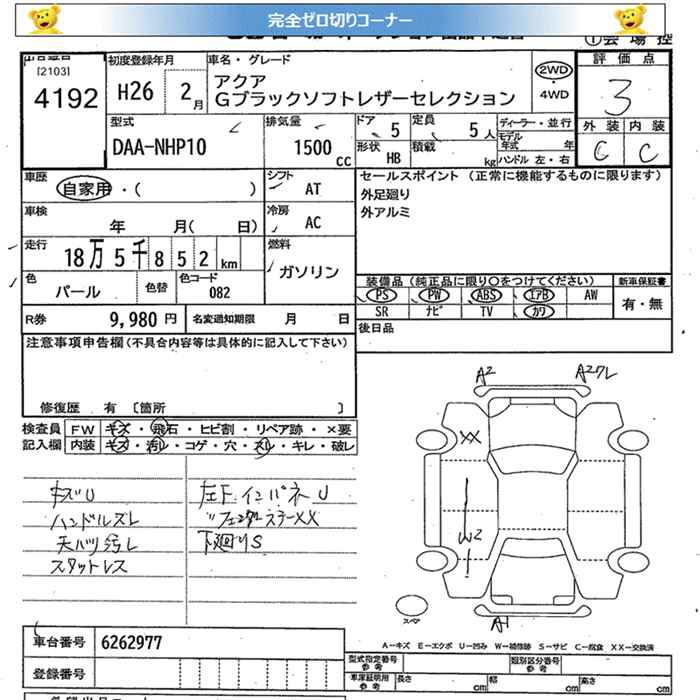 完全ゼロ切りコーナー
[2103]
4192
初度登録年月
H26 2月
車名・グレード
アクア
Gブラックソフトレザーセレクション
2WD
・
4WD
評価点
3
外装 内装
C C
型式
DAA-NHP10
排気量
1500 cc
ドア 5
形状 HB
定員 5人
積載 kg
ディーラー・並行
モデル年式 年
ハンドル 左・右
車歴
自家用・( )
シフト AT
車検
年 月( 日)
冷房 AC
走行
18万5千852km
燃料
ガソリン
色
パール
色替
色コード
082
R券 9,980円
名変通知期限 月 日
セールスポイント (正常に機能するものに限ります)
外足廻り
外アルミ
装備品(純正品に限り○をつけてください)
PS PW ABS エアB AW
SR ナビ TV カワ
新車保証書
有・無
後日品
注意事項申告欄(不具合内容等は具体的に記入して下さい)
修復歴 有 〔箇所 〕
検査員記入欄
FW キズ・飛石・ヒビ割・リペア跡・×要
内装 キズ・汚レ・コゲ・穴・スレ・キレ・破レ
キズU
ハンドルズレ
天バリ汚レ
スタットレス
左F インパネU
〃フェンダーステーXX
下廻りS
A2
A2ワレ
XX
W2
A1
スペア
A-キズ E-エクボ U-凹み W-補修跡 S-サビ C-腐食 XX-交換済
車台番号 6262977
登録番号
型式指定番号
参考
類別区分番号
参考
車庫証明用
参考
長さ cm
幅 cm
高さ cm